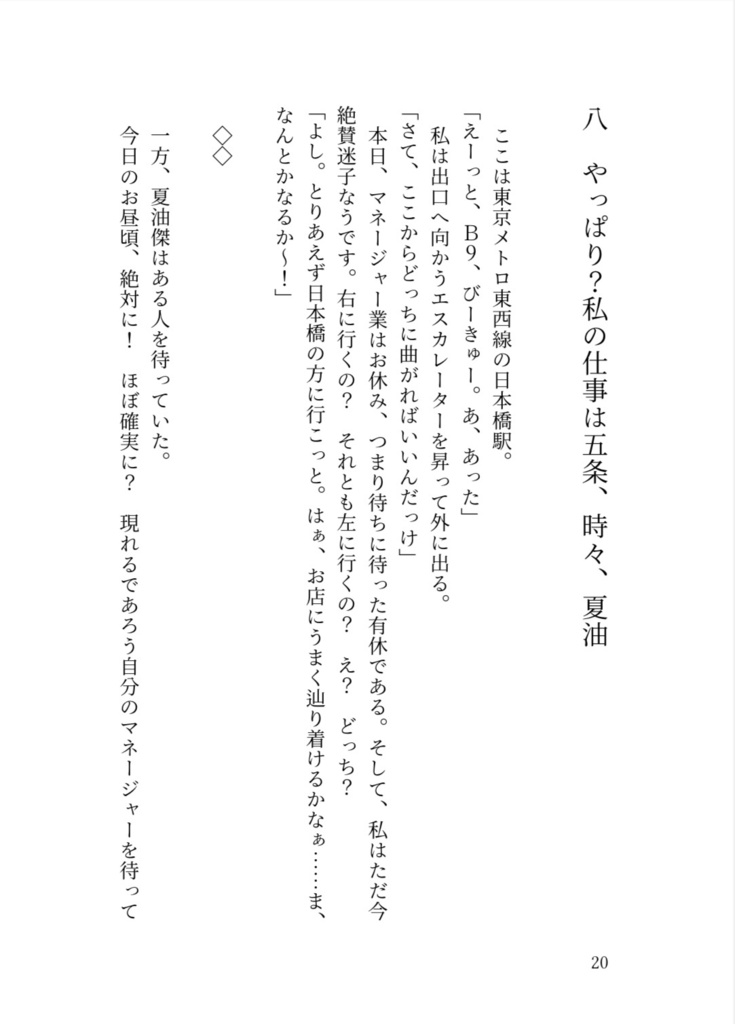 八　やっぱり？私の仕事は五条、時々、夏油
　ここは東京メトロ東西線の日本橋駅。
「えーっと、B9、びーきゅー。あ、あった」
　私は出口へ向かうエスカレーターを昇って外に出る。
「さて、ここからどっちに曲がればいいんだっけ」
　本日、マネージャー業はお休み、つまり待ちに待った有休である。そして、私はただ今
絶賛迷子なうです。右に行くの？　それとも左に行くの？　え？　どっち？
「よし。とりあえず日本橋の方に行こっと。はぁ、お店にうまく辿り着けるかなぁ……ま、
なんとかなるか〜！」
◇◇
　一方、夏油傑はある人を待っていた。
　今日のお昼頃、絶対に！　ほぼ確実に？　現れるであろう自分のマネージャーを待って
20